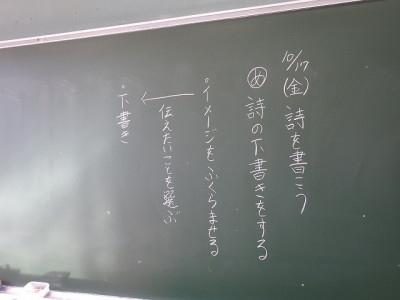 10/17(金) 詩を書こう
め 詩の下書きをする
・イメージをふくらませる
伝えたいことを選ぶ
・下書き